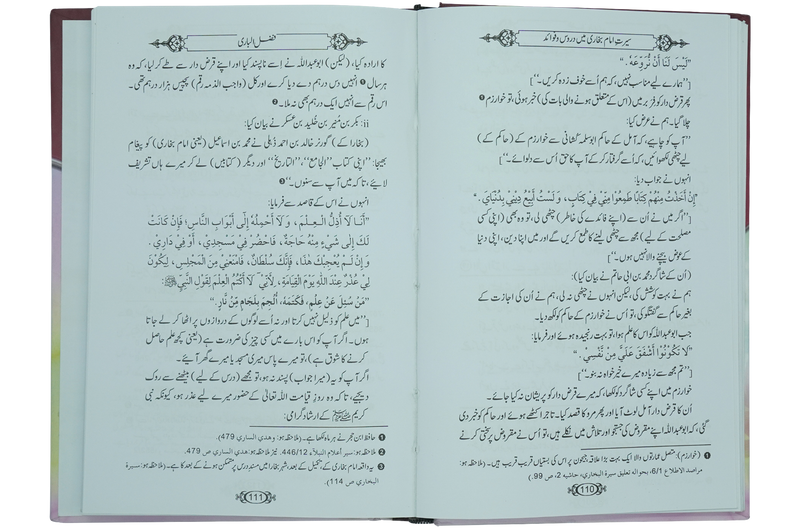 سیرتِ امام بخاری میں دروس وفوائد
"لَيْسَ لَنَا أَنْ نُّرَوِّعَهُ."
["ہمارے لیے مناسب نہیں، کہ ہم اُسے خوف زدہ کریں۔"]
پھر قرض دار کو فَرَبر میں (اس کے متعلق ہونے والی بات کی) خبر ہوئی، تو خوارزم ❶
چلا گیا۔ ہم نے عرض کیا:
"آپ کو چاہیے، کہ آمل کے حاکم ابوسلمہ کشانی سے خوارزم کے (حاکم کے)
لیے چٹھی لکھوائیں، کہ اُسے گرفتار کر کے آپ کا حق اُس سے دلوائے۔"
انہوں نے جواب دیا:
"إِنْ أَخَذْتُ مِنْهُمْ كِتَابًا طَمِعُوْا مِنِّيْ فِيْ كِتَابٍ، وَ لَسْتُ أَبِيْعُ دِيْنِيْ بِدُنْيَايَ."
["اگر میں نے اُن سے (اپنے فائدے کی خاطر) چٹھی لی، تو وہ بھی (اپنی کسی
مصلحت کے لیے) مجھ سے چٹھی لینے کا طمع کریں گے اور میں اپنا دین، اپنی دنیا
کے عوض بیچنے والا نہیں ہوں۔"]
(اُن کے شاگرد محمد بن ابی حاتم نے بیان کیا):
ہم نے بہت کوشش کی، لیکن انہوں نے چٹھی نہ لی، ہم نے اُن کی اجازت کے
بغیر حاکم سے گفتگو کی، تو اُس نے خوارزم کے حاکم کو لکھ دیا۔
جب ابوعبداللہ کو اس کا علم ہوا، تو بہت رنجیدہ ہوئے اور فرمایا:
"لَا تَكُوْنُوْا أَشْفَقَ عَلَيَّ مِنْ نَّفْسِيْ."
["تم مجھ سے زیادہ میرے خیر خواہ نہ بنو۔"]
خوارزم میں اپنے کسی شاگرد کو لکھا، کہ میرے قرض دار کو پریشان نہ کیا جائے۔
اُن کا قرض دار آمل لوٹ آیا اور پھر مرو کا قصد کیا۔ تاجر اکٹھے ہوئے اور حاکم کو خبر دی
گئی، کہ ابوعبداللہ اپنے مقروض کی جستجو اور تلاش میں نکلے ہیں، تو اُس نے مقروض پر سختی کرنے
❶ (خوارزم): متصل عمارتوں والا ایک بہت بڑا علاقہ جیحون پر اس کی بستیاں قریب قریب ہیں۔ (ملاحظہ ہو:
مراصد الاطلاع 6/1، بحوالہ تعلیق سیرۃ البخاري، حاشیہ 2، ص 99.)
110
فضل الباری
کا ارادہ کیا، (لیکن) ابوعبداللہ نے اسے ناپسند کیا اور اپنے قرض دار سے طے کر لیا، کہ وہ
ہر سال ❶ انہیں دس درہم دے دیا کرے اور کل (واجب الذمہ رقم) پچیس ہزار درہم تھی۔
اس رقم سے انہیں ایک درہم بھی نہ ملا۔ ❷
ii: بکر بن مُنیر بن خلید بن عسکر نے بیان کیا:
(بخارا کے) گورنر خالد بن احمد ذُہلی نے محمد بن اسماعیل (یعنی امام بخاری) کو پیغام
بھیجا: "اپنی کتاب "الجامع"، "التاریخ" اور دیگر (کتابیں) لے کر میرے ہاں تشریف
لائیے، تاکہ میں آپ سے سنوں۔" ❸
انہوں نے اس کے قاصد سے فرمایا:
"أَنَا لَا أُذِلُّ الْعِلْمَ، وَ لَا أَحْمِلُهُ إِلَى أَبْوَابِ النَّاسِ؛ فَإِنْ كَانَتْ
لَكَ إِلَى شَيْءٍ مِّنْهُ حَاجَةٌ، فَاحْضُرْ فِيْ مَسْجِدِيْ، أَوْ فِيْ دَارِيْ.
وَ إِنْ لَّمْ يُعْجِبْكَ هٰذَا، فَإِنَّكَ سُلْطَانٌ، فَامْنَعْنِيْ مِنَ الْمَجْلِسِ، لِيَكُوْنَ
لِيْ عُذْرٌ عِنْدَ اللهِ يَوْمَ الْقِيَامَةِ، لِأَنِّيْ لَا أَكْتُمُ الْعِلْمَ لِقَوْلِ النَّبِيِّ ﷺ:
"مَنْ سُئِلَ عَنْ عِلْمٍ، فَكَتَمَهُ، أُلْجِمَ بِلِجَامٍ مِّنْ نَّارٍ."
["میں علم کو ذلیل نہیں کرتا اور نہ اُسے لوگوں کے دروازوں پر اٹھا کر لے جاتا
ہوں۔ اگر آپ کو اس بارے میں کسی چیز کی ضرورت ہے (یعنی کچھ علم حاصل
کرنے کا شوق ہے)، تو میرے پاس میری مسجد یا میرے گھر آیئے۔
اگر آپ کو یہ (میرا جواب) پسند نہ ہو، تو مجھے (درس کے لیے) بیٹھنے سے روک
دیجیے، تاکہ وہ روزِ قیامت اللہ تعالیٰ کے حضور میرے لیے عذر ہو، کیونکہ نبی
کریم ﷺ کے ارشادِ گرامی:
❶ حافظ ابن حجر نے ہر ماہ لکھا ہے۔ (ملاحظہ ہو: وهدي الساري 479).
❷ ملاحظہ ہو: سیر أعلام النبلاء 446/12. نیز ملاحظہ ہو: هدي الساري ص 479.
❸ یہ واقعہ امام بخاری کے، تکمیلِ کے بعد، شہر بخارا میں مسندِ درس پر متمکن ہونے کے بعد کا ہے۔ (ملاحظہ ہو: سیرۃ
البخاري ص 114).
111